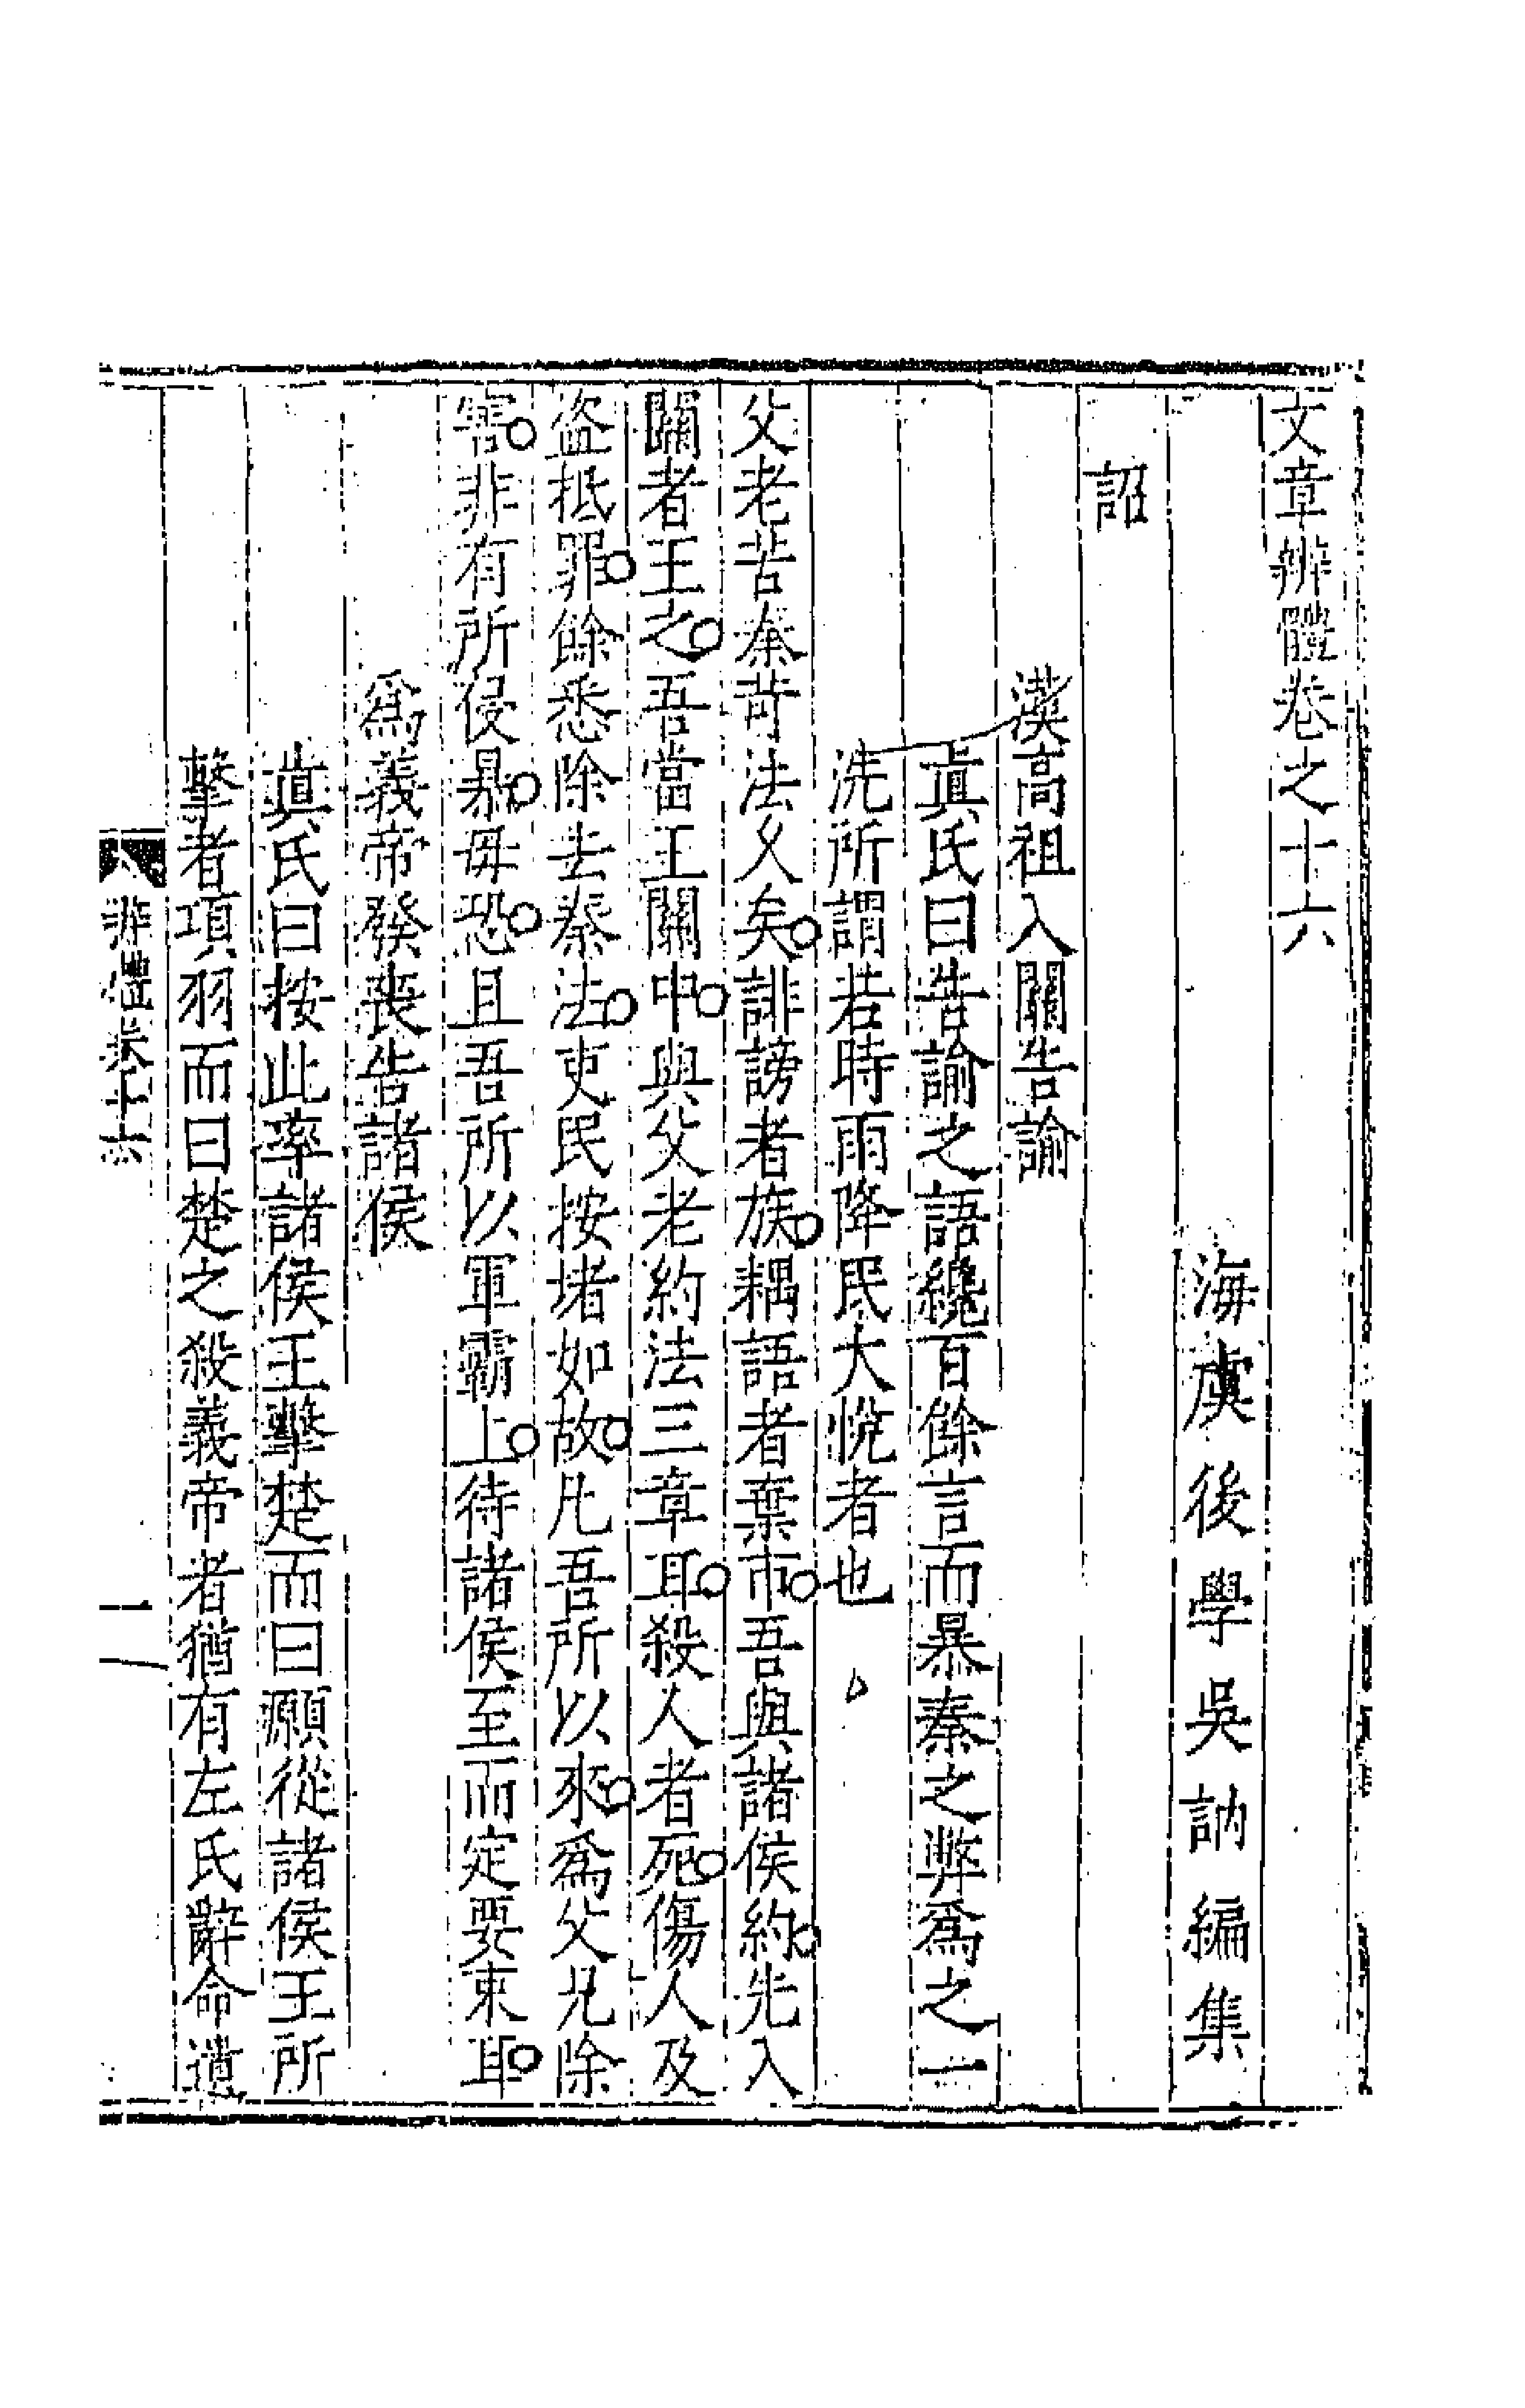 文章辨體卷之十六
海虞後學吳訥編集
詔
漢高祖入關告諭
眞氏曰告諭之語纔百餘言而暴秦之弊爲之一
洗所謂若時雨降民大悅者也
父老苦秦苛法乆矣誹謗者族耦語者棄市吾與諸侯約先入
關者王之吾當王關中與父老約法三章耳殺人者死傷人及
盗抵罪餘悉除去秦法吏民按堵如故凡吾所以來爲父兄除
害非有所侵暴毋恐且吾所以軍霸上待諸侯至而定要束耳
爲義帝發喪告諸侯
眞氏曰按此率諸侯王擊楚而曰願從諸侯王所
擊者項羽而曰楚之殺義帝者猶有左氏辭命遺
辨體卷十六
一